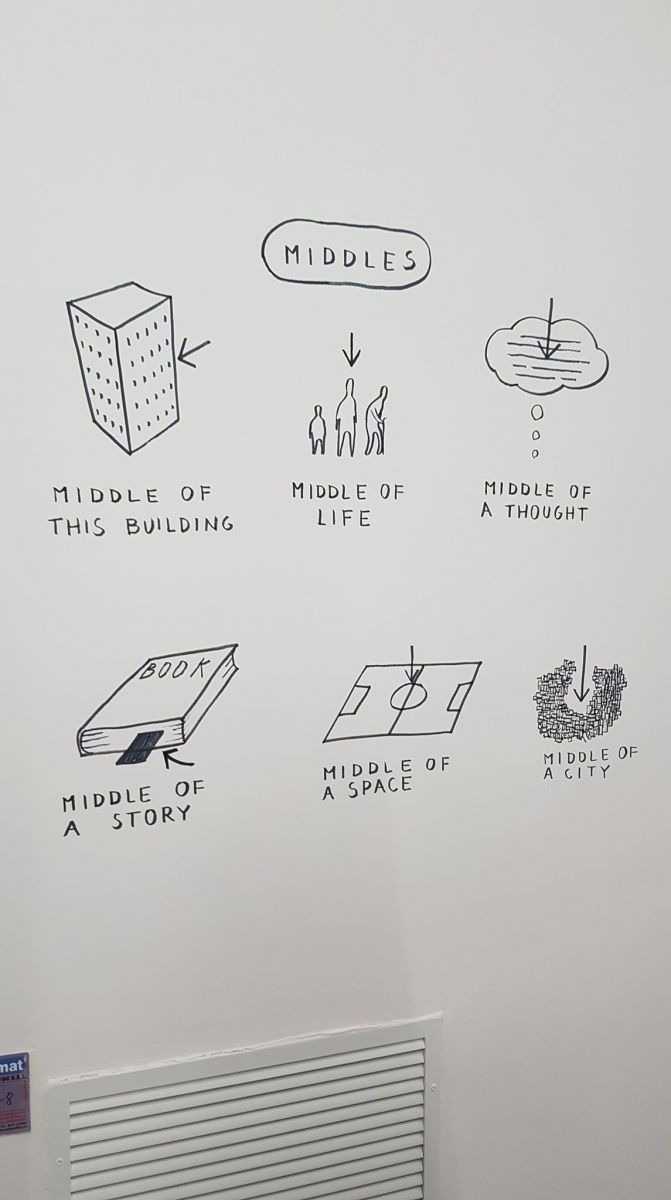 MIDDLES
MIDDLE OF
THIS BUILDING
MIDDLE OF
LIFE
MIDDLE OF
A THOUGHT
BOOK
MIDDLE OF
A STORY
MIDDLE OF
A SPACE
MIDDLE OF
A CITY
mat
-8